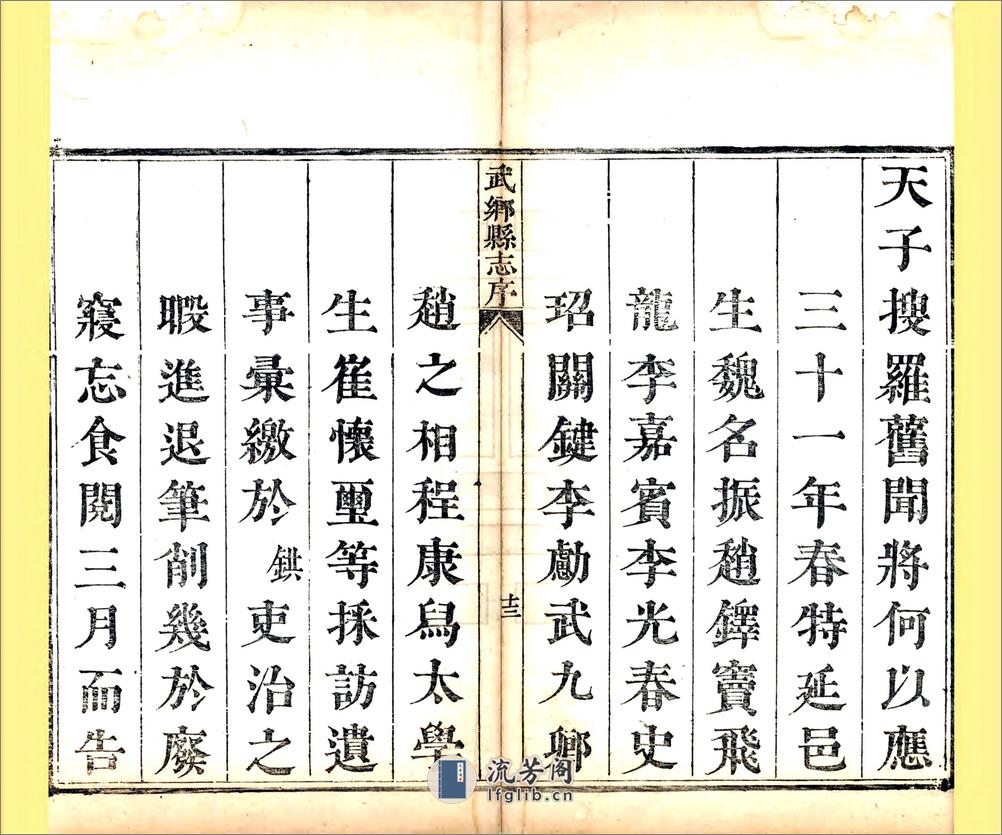 天子搜羅舊聞將何以應
三十一年春特延邑
生魏名振趙鐸竇飛
龍李嘉賓李光春史
玿關鍵李勷武九鄉
武鄉縣志序
十三
趙之相程康舄太學
生崔懷璽等採訪遺
事彙繳於鉷吏治之
暇進退筆削幾於廢
寢忘食閱三月而告
流芳阁
lfglib.cn